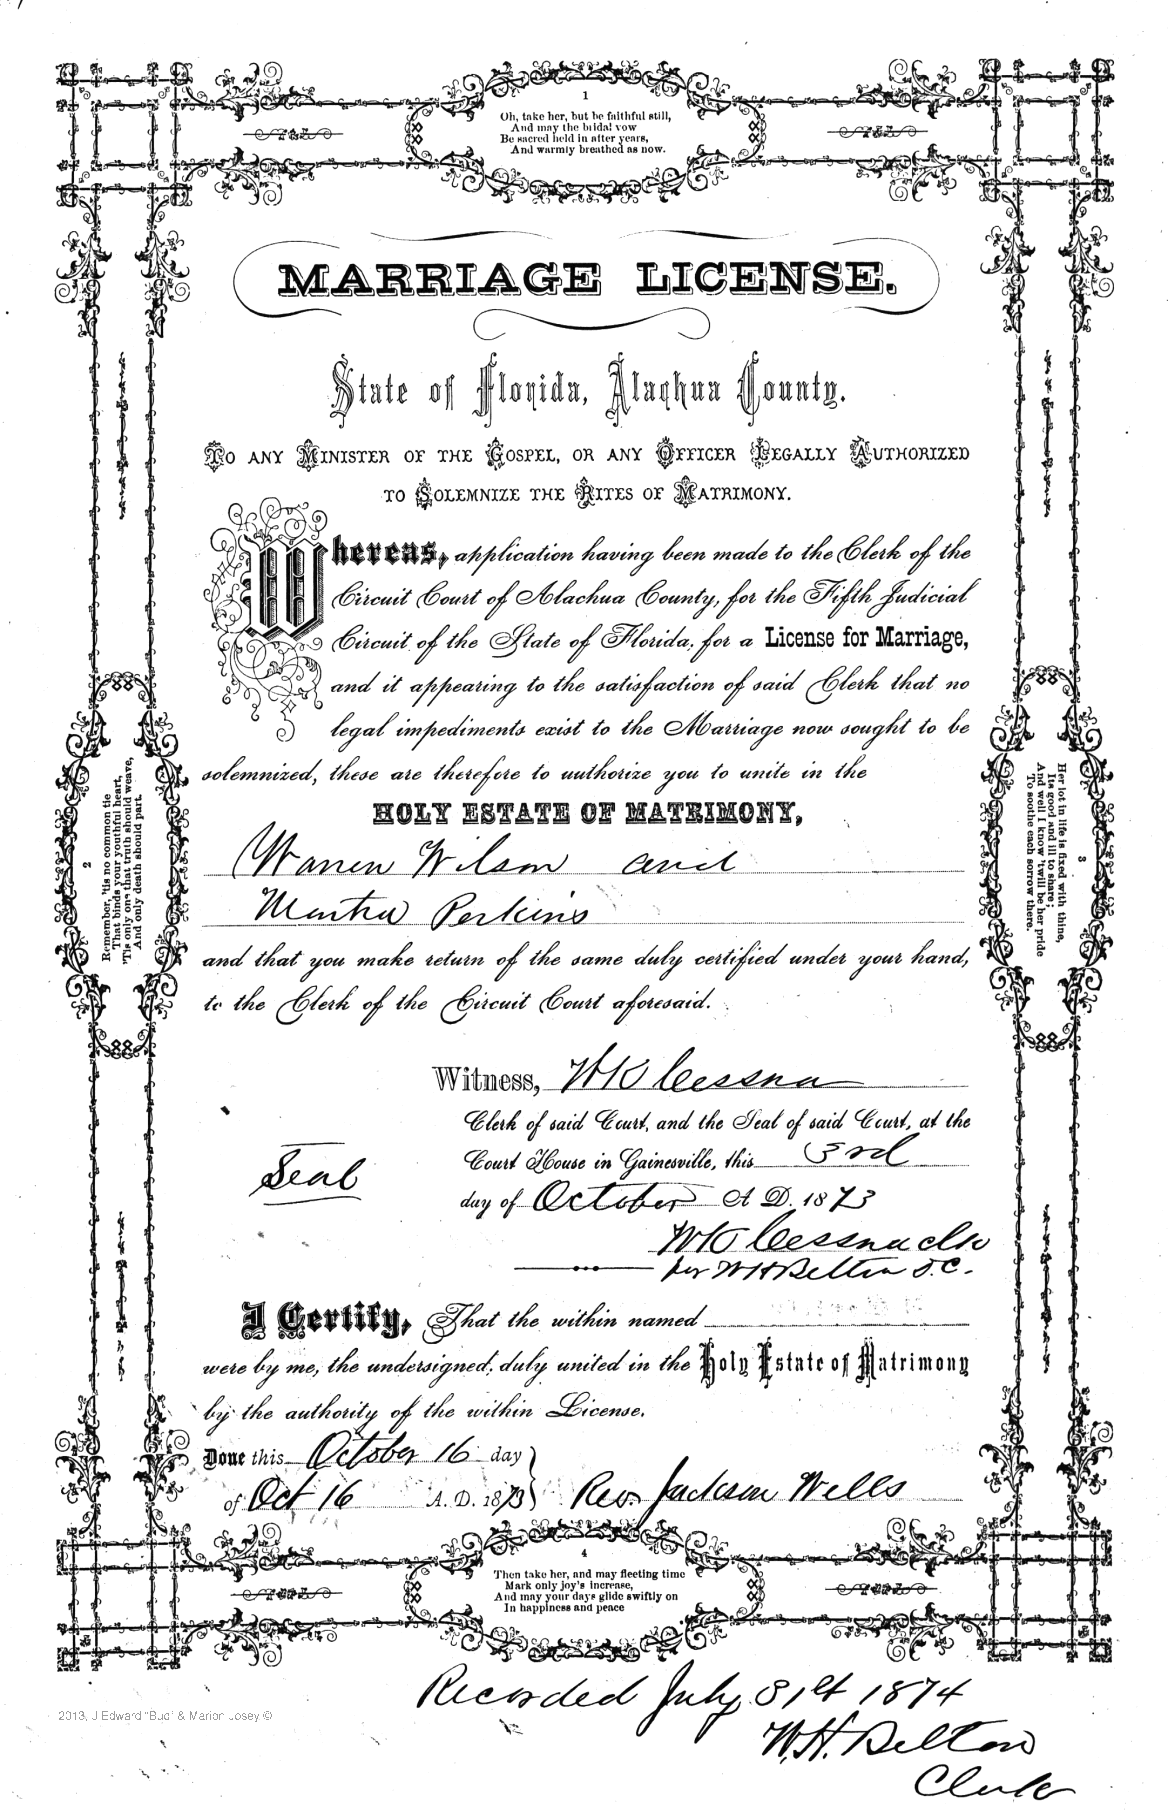 1
Oh, take her, but be faithful still,
And may the bridal vow
Be sacred held in after years,
And warmly breathed as now.
MARRIAGE LICENSE.
State of Florida, Alachua County.
TO ANY MINISTER OF THE GOSPEL, OR ANY OFFICER LEGALLY AUTHORIZED
TO SOLEMNIZE THE RITES OF MATRIMONY.
Whereas, application having been made to the Clerk of the
Circuit Court of Alachua County, for the Fifth Judicial
Circuit of the State of Florida, for a License for Marriage,
and it appearing to the satisfaction of said Clerk that no
legal impediments exist to the Marriage now sought to be
solemnized, these are therefore to authorize you to unite in the
HOLY ESTATE OF MATRIMONY,
Warren Wilson and
Martha Perkins
and that you make return of the same duly certified under your hand,
to the Clerk of the Circuit Court aforesaid.
2
Remember, 'tis no common tie
That binds your youthful heart,
'Tis only one that truth should weave,
And only death should part.
3
Her lot in life is fixed with thine,
Its good and ill to share;
And well I know 'twill be her pride
To soothe each sorrow there.
Witness, WK Cessna
Clerk of said Court, and the Seal of said Court, at the
Court House in Gainesville, this 3rd
day of October A D. 1873
Seal
WK Cessna Clk
per WH Belton D.C.
I Certify, That the within named
were by me, the undersigned, duly united in the Holy Estate of Matrimony
by the authority of the within License.
Done this October 16 day
of Oct 16 A. D. 1873 Rev. Jackson Wells
4
Then take her, and may fleeting time
Mark only joy's increase,
And may your days glide swiftly on
In happiness and peace
Recorded July 31st 1874
W.H. Belton
Clerk
2013, J Edward "Bud" & Marion Josey ©